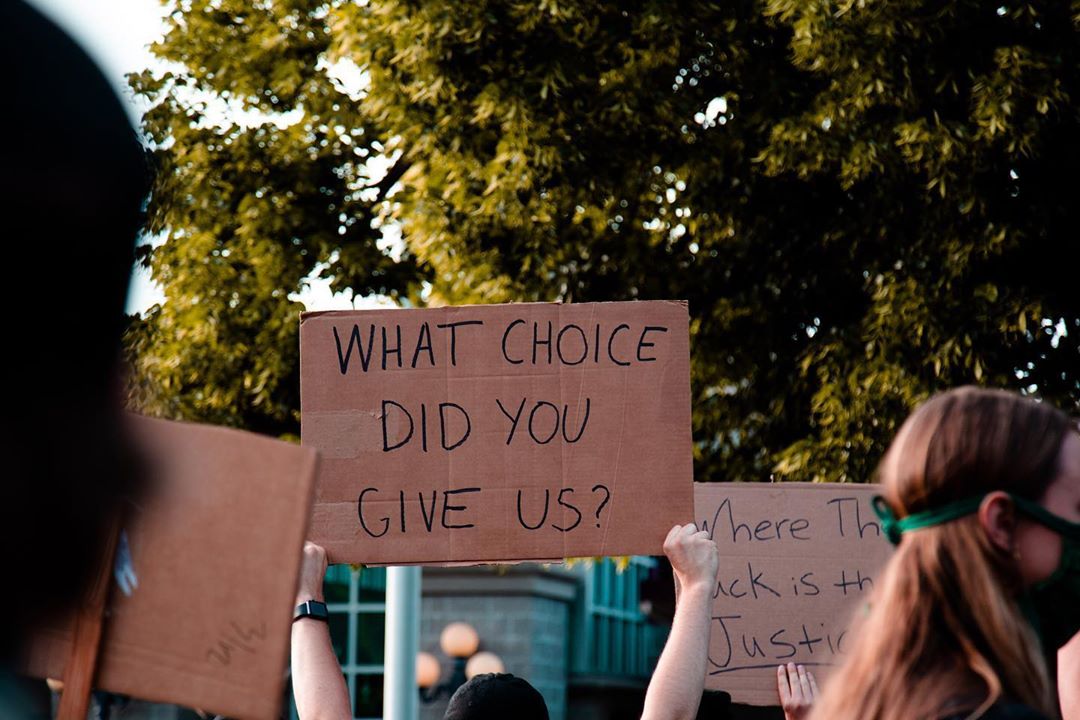 WHAT CHOICE
DID YOU
GIVE US?
Where Th
uck is th
Justic